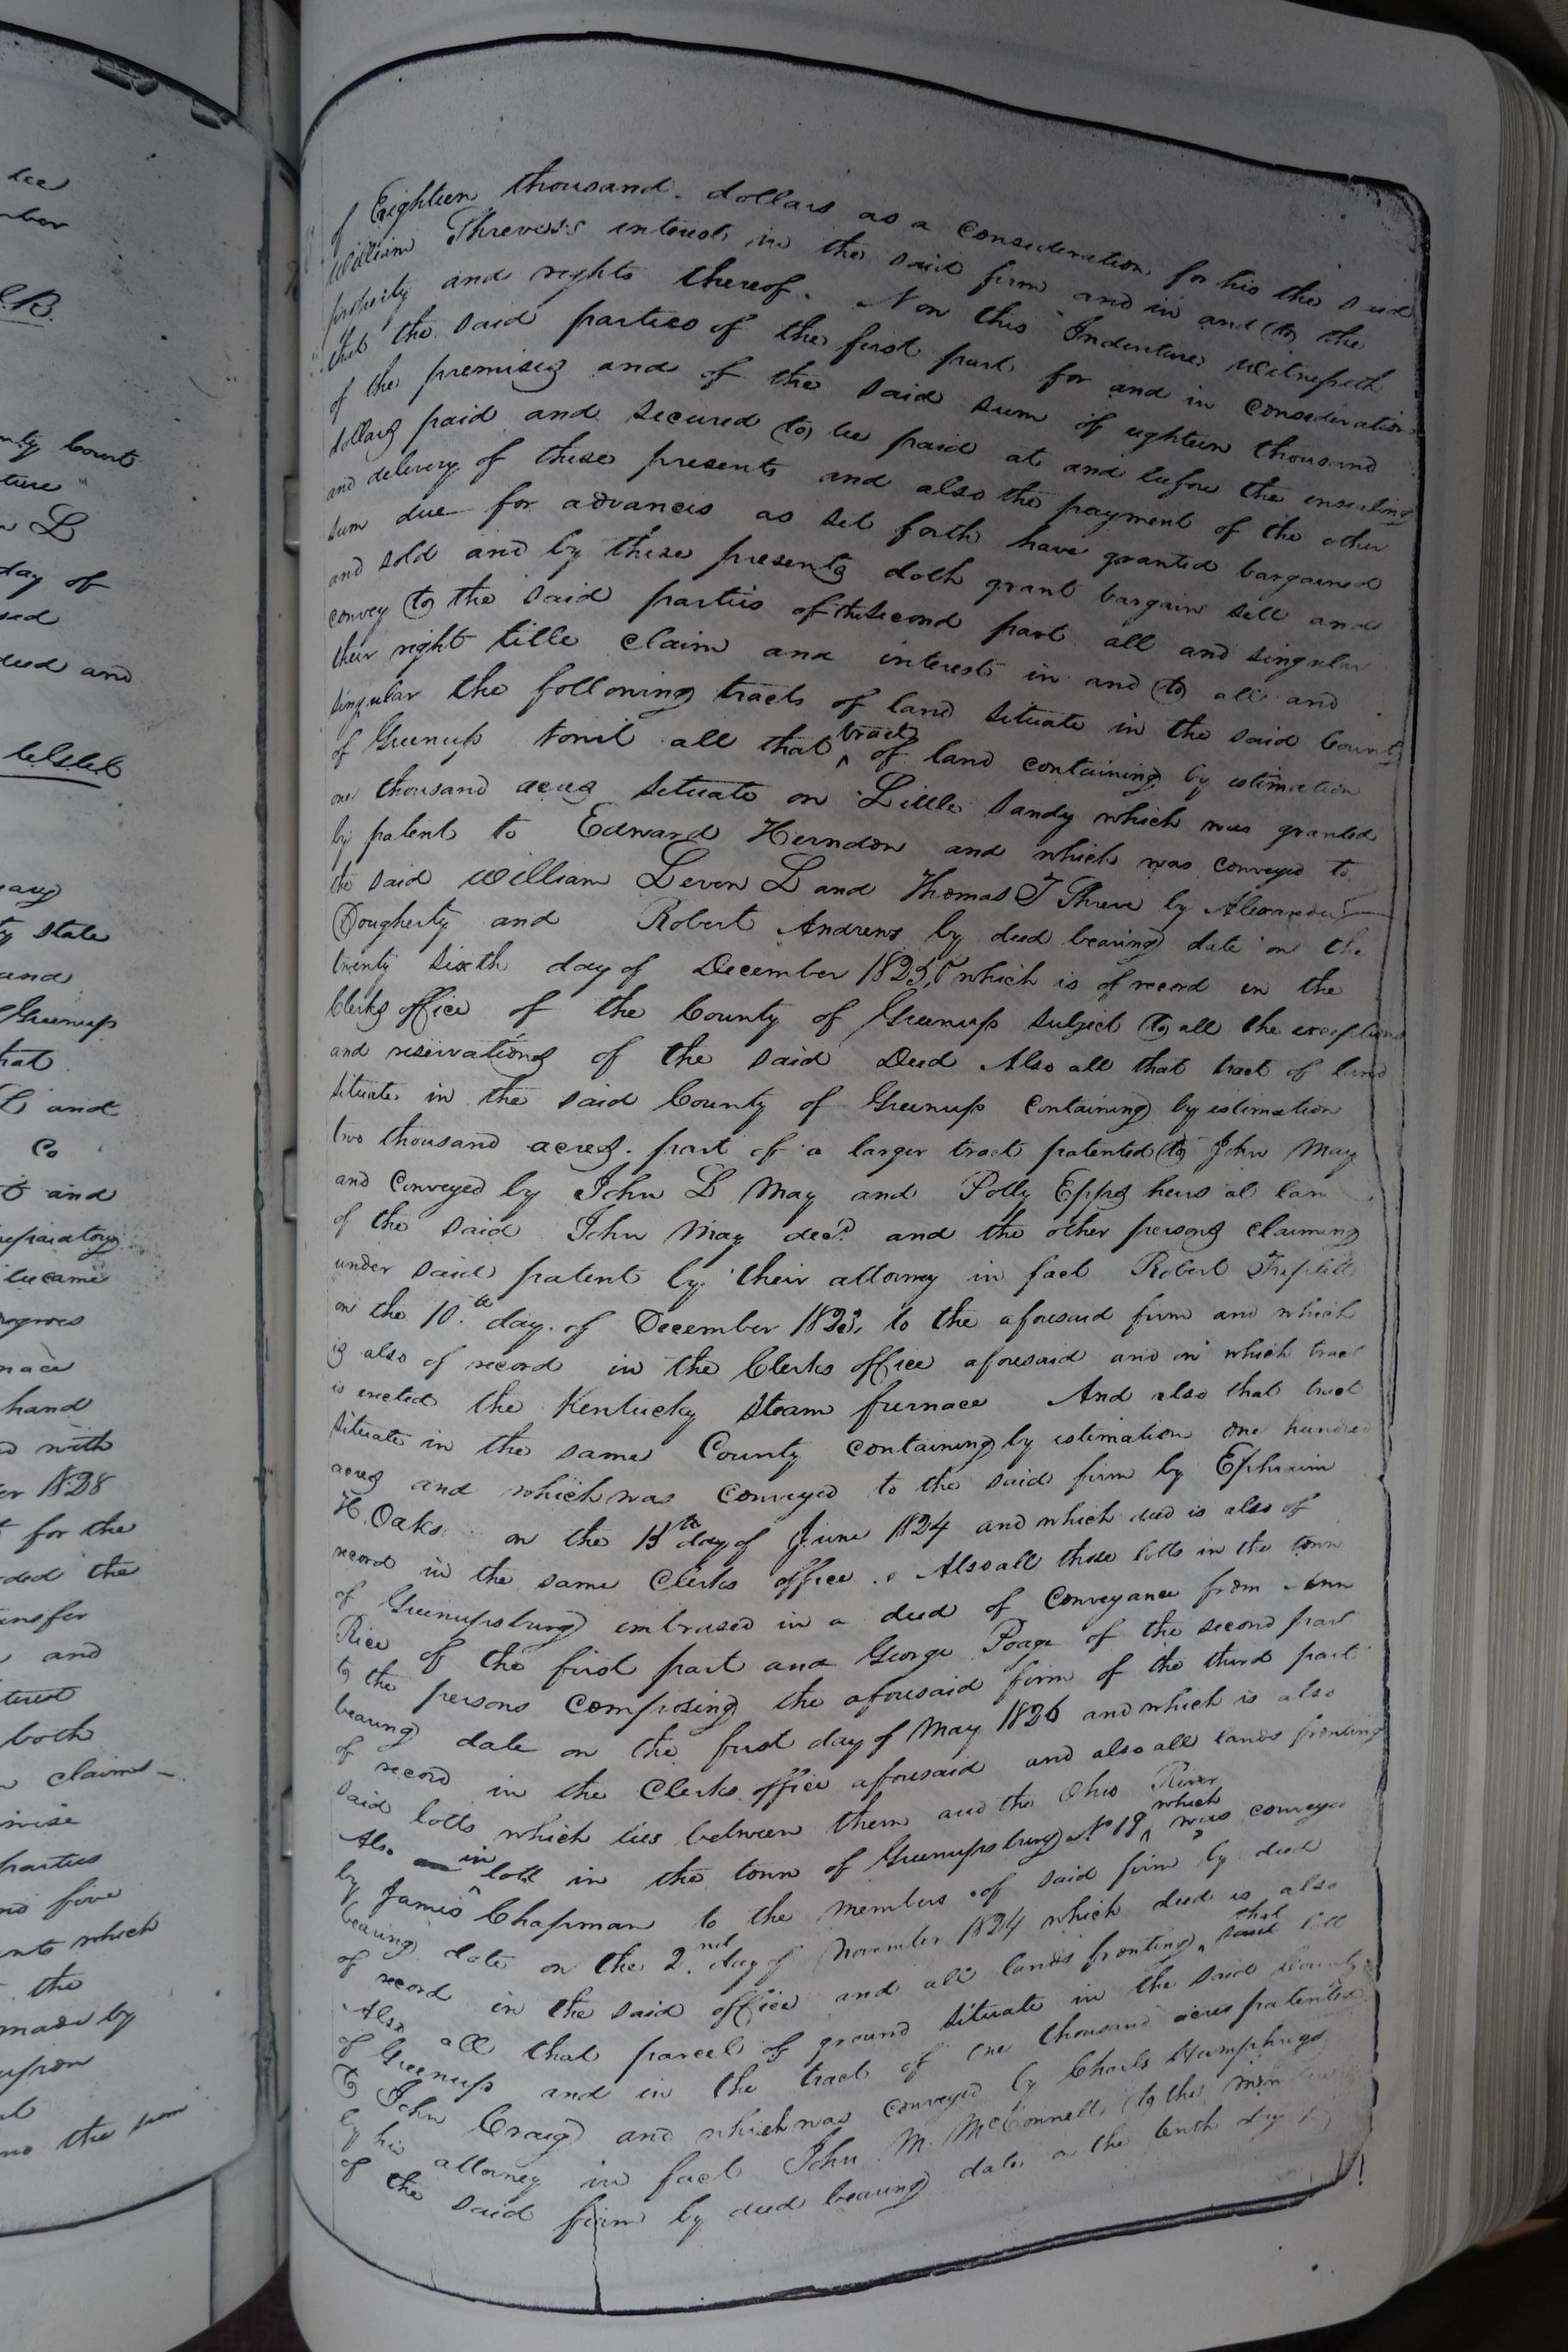 lee
C.B.
L
day of
deed and
ty State
and
Greenup
hat
L and
Co
and
became
hand
with
1828
for the
ded the
and
both
claims
parties
five
which
the
made by
upon
the firm
of Eighteen thousand dollars as a consideration for his the said
William Threves's interest in the said firm and in and to the
property and rights thereof. Now this Indenture Witnesseth
that the said parties of the first part for and in consideration
of the premises and of the said sum of eighteen thousand
dollars paid and secured to be paid at and before the ensealing
and delivery of these presents and also the payment of the other
sum due for advances as set forth have granted bargained
and sold and by these presents doth grant bargain sell and
convey to the said parties of the second part all and singular
their right title claim and interest in and to all and
singular the following tracts of land situate in the said County
of Greenup towit all that tract of land containing by estimation
one thousand acres situate on Little Sandy which was granted
by patent to Edward Herndon and which was conveyed to
the said William Leven L and Thomas T Threve by Alexander
Dougherty and Robert Andrews by deed bearing date on the
twenty sixth day of December which is of record in the
Clerks office of the County of Greenup subject to all the exceptions
and reservations of the said Deed Also all that tract of land
situate in the said County of Greenup containing by estimation
two thousand acres. part of a larger tract patented to John May
and conveyed by John L May and Polly Epps heirs at law
of the said John May decd. and the other persons claiming
under said patent by their attorney in fact Robert Triplett
on the 10.th day of December 1823, to the aforesaid firm and which
is also of record in the Clerks office aforesaid and on which tract
is erected the Kentucky Steam furnace And also that tract
situate in the same County containing by estimation one hundred
acres and which was conveyed to the said firm by Ephraim
H. Oaks on the 15th day of June 1824 and which deed is also of
record in the same Clerks office. Also all those lotts in the town
of Greenupsburg embrased in a deed of conveyance from Ann
Rice of the first part and George Poage of the second part
to the persons composing the aforesaid firm of the third part
bearing date on the first day of May 1826 and which is also
of record in the Clerks office aforesaid and also all lands fronting
said lotts which lies between them and the Ohio River
Also in lott in the town of Greenupsburg No 19 which was conveyed
by James Chapman to the members of said firm by deed
bearing date on the 2.nd day of November 1824 which deed is also
of record in the said office and all lands fronting that said lott
Also all that parcel of ground situate in the said County
of Greenup and in the tract of one thousand acres patented
to John Craig and which was conveyed by Charls Humphreys
by his attorney in fact John M. McConnell to the
of the said firm by deed bearing date on the tenth day of